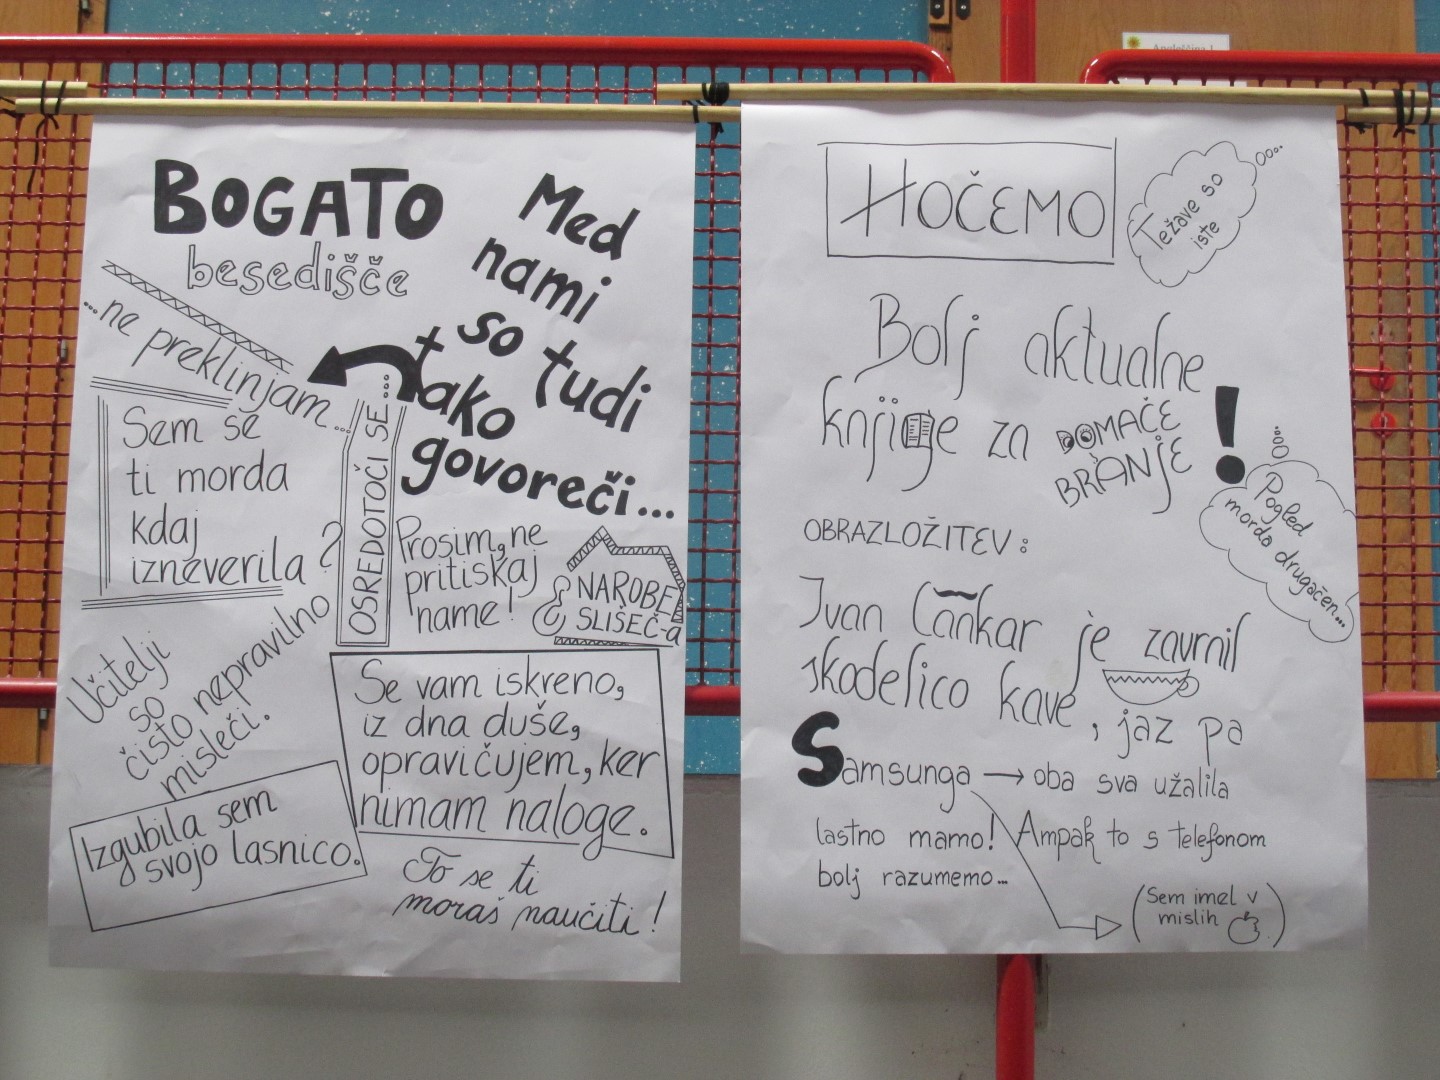 BOGATO
besedišče
Med
nami
so tudi
tako
govoreči...
...ne preklinjam...
Sem se
ti morda
kdaj
izneverila?
OSREDOTOČI SE...
Prosim, ne
pritiskaj
name!
NAROBE
SLIŠEČ-a
Učitelji
so
čisto nepravilno
misleči.
Se vam iskreno,
iz dna duše,
opravičujem, ker
nimam naloge.
Izgubila sem
svojo lasnico.
To se ti
moraš naučiti!
HOČEMO
Težave so
iste
Bolj aktualne
knjige za DOMAČE
BRANJE!
Pogled
morda drugačen...
OBRAZLOŽITEV:
Ivan Cankar je zavrnil
skodelico kave, jaz pa
Samsunga → oba sva užalila
lastno mamo! Ampak to s telefonom
bolj razumemo...
(Sem imel v
mislih )
Angleščina 1